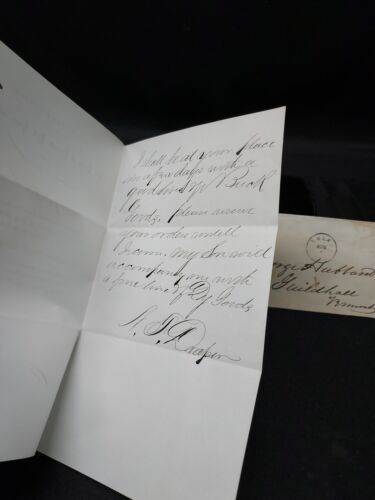 I shall be at your place
in a few days with a
good line of Buck
Goods. please reserve
your orders untill
I come. My Son will
accompany me with
a fine line of Dy Goods
Draper
George Hubbard
Guildhall
Vermont